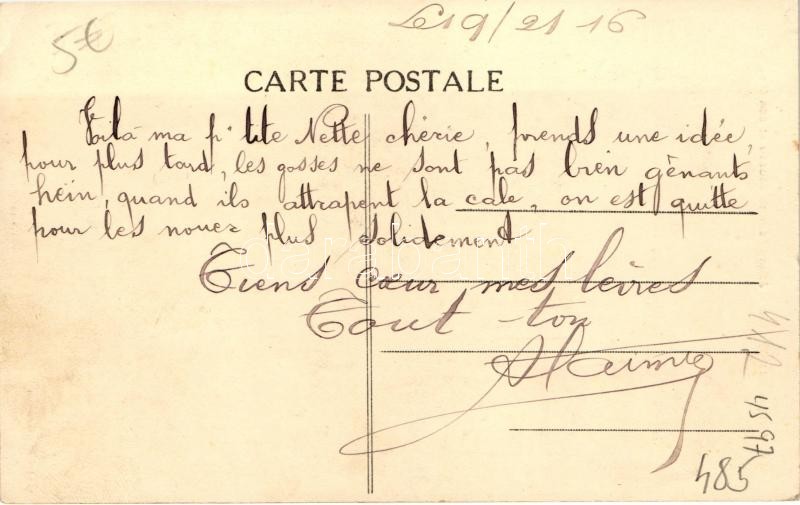 Le 19/21 16
5€
CARTE POSTALE
Voilà ma p'tite Nette chérie, prends une idée,
pour plus tard, les gosses ne sont pas bien gênants
hein, quand ils attrapent la cale, on est quitte
pour les nouer plus solidement
Tiens cœur, mes lèvres
Tout ton
485